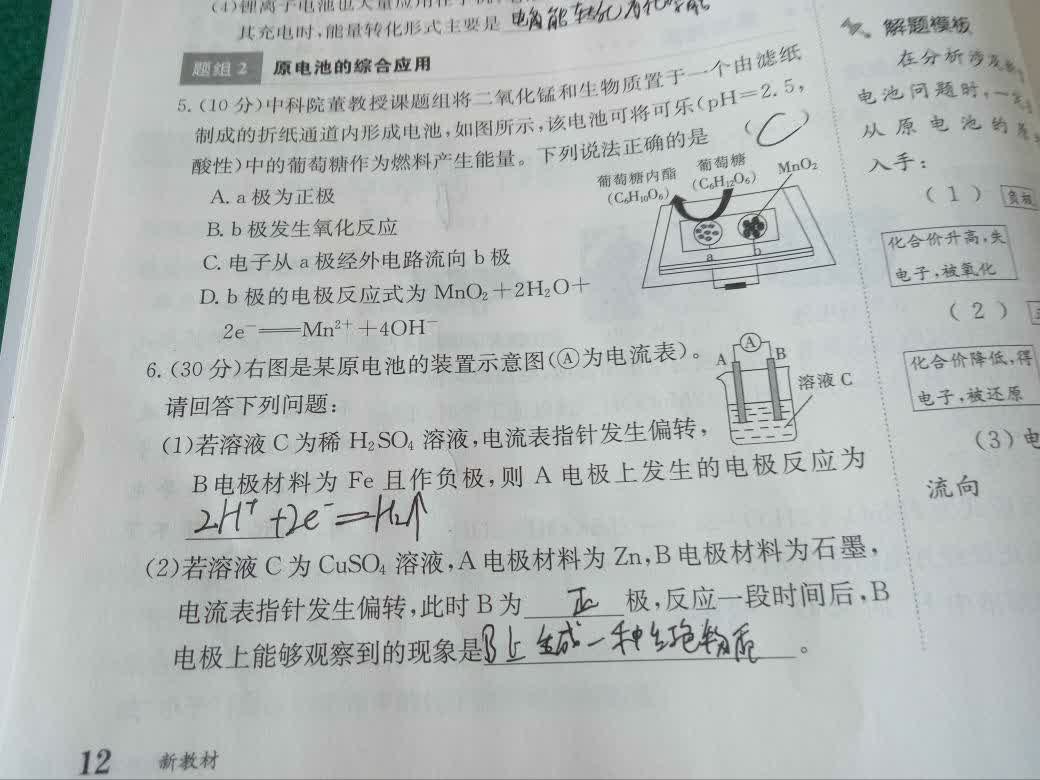 (4)锂离子电池也大量应用在
其充电时,能量转化形式主要是 电能转化为化学能
题组2 原电池的综合应用
5.(10分)中科院董教授课题组将二氧化锰和生物质置于一个由滤纸
制成的折纸通道内形成电池,如图所示,该电池可将可乐(pH=2.5,
酸性)中的葡萄糖作为燃料产生能量。下列说法正确的是 (C)
A. a极为正极
B. b极发生氧化反应
C. 电子从a极经外电路流向b极
D. b极的电极反应式为MnO₂+2H₂O+
2e⁻══Mn²⁺+4OH⁻
葡萄糖内酯
(C₆H₁₀O₆)
葡萄糖
(C₆H₁₂O₆)
MnO₂
a
b
6.(30分)右图是某原电池的装置示意图(Ⓐ为电流表)。
请回答下列问题:
(1)若溶液C为稀H₂SO₄溶液,电流表指针发生偏转,
B电极材料为Fe且作负极,则A电极上发生的电极反应为
2H⁺+2e⁻=H₂↑
A
Ⓐ
B
溶液C
(2)若溶液C为CuSO₄溶液,A电极材料为Zn,B电极材料为石墨,
电流表指针发生偏转,此时B为 正 极,反应一段时间后,B
电极上能够观察到的现象是B上生成一种红色物质。
12 新教材
解题模板
在分析涉及
电池问题时,一
从原电池的
入手:
(1) 负极
化合价升高,失
电子,被氧化
(2)
化合价降低,得
电子,被还原
(3)电
流向